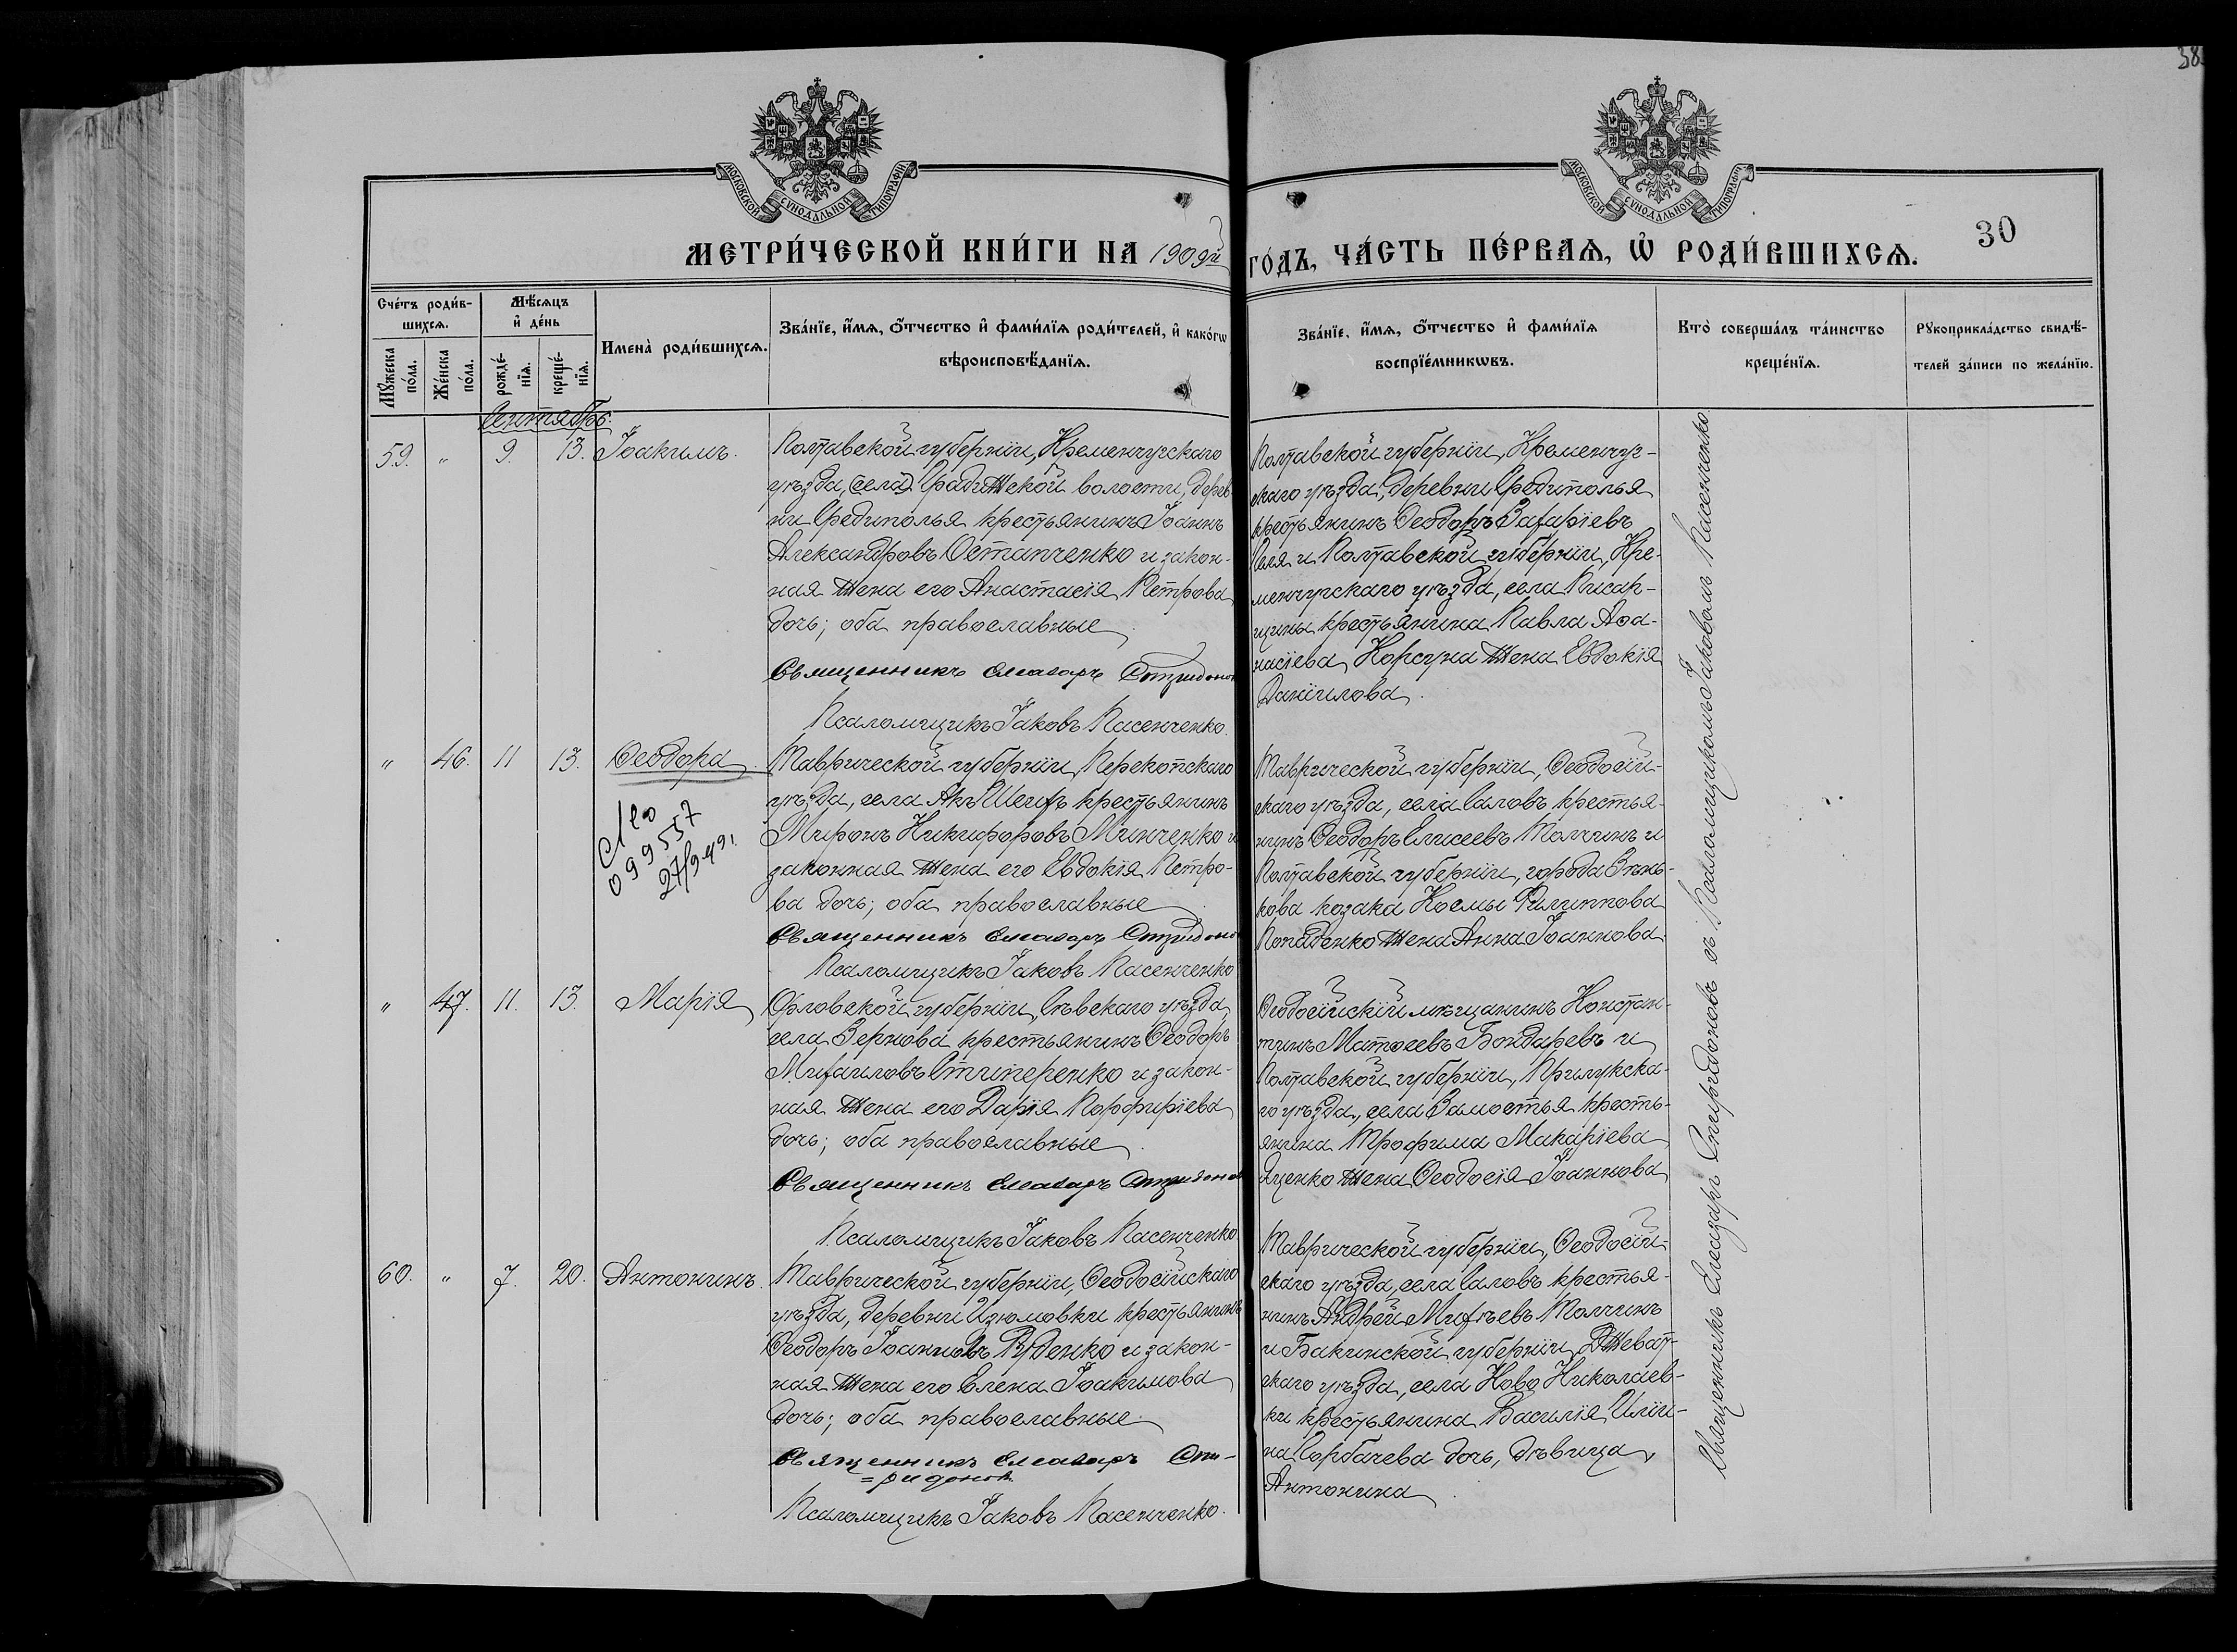 38
МОСКОВСКОЙ СУНОДАЛЬНОЙ ТИПОГРАФИ.
МОСКОВСКОЙ СУНОДАЛЬНОЙ ТИПОГРАФИ.
30
МЕТРИ́ЧЕСКОЙ КНИ́ГИ НА 1909й ГО́ДЪ, ЧА́СТЬ ПЕ́РВАЯ, Ѡ҆ РОДИ́ВШИХСЯ.
Сче́тъ роди́в-
шихся.
Мѣ́сяцъ
и҆ де́нь
Мꙋ́жеска по́ла.
Же́нска по́ла.
рожде́-нїя.
креще́-нїя.
Имена̀ роди́вшихся.
Зва́нїе, и҆́мя, ѻ҆́тчество и҆ фами́лїя роди́телей, и҆ како́гѡ
вѣроисповѣ́данїя.
Зва́нїе, и҆́мя, ѻ҆́тчество и҆ фами́лїя
воспрїе́мникѡвъ.
Кто̀ соверша́лъ та́инство
креще́нїя.
Рꙋкоприкла́дство свидѣ́-
телей за́писи по жела́нїю.
Сентябрь.
59. " 9. 13. Іоакимъ.
Полтавской губерніи, Кременчугскаго
уѣзда, (села) Градижской волости, дерев
ни Средиполья крестьянинъ Іоаннъ
Александровъ Остапченко и закон-
ная жена его Анастасія Петрова
дочь; оба православные.
Священникъ Елеазаръ Спиридонов
Псаломщикъ Іаковъ Пасенченко.
Полтавской губерніи, Кременчуг-
скаго уѣзда, деревни Средиполья
крестьянинъ Ѳеодоръ Захаріевъ
и Полтавской губерніи, Кре-
менчугскаго уѣзда, села Писар-
щины крестьянина Павла Аѳа-
насіева Корсуна жена Евдокія
Даніилова.
" 46. 11 13. Ѳеодора
099557
27/9-49.
Таврической губерніи, Перекопскаго
уѣзда, села Акъ Шеихъ крестьянинъ
Миронъ Никифоровъ Минченко и
законная жена его Евдокія Петро-
ва дочь; оба православные.
Священникъ Елеазаръ Спиридонов
Псаломщикъ Іаковъ Пасенченко
Таврической губерніи, Ѳеодосій-
скаго уѣзда, села Саловъ крестья-
нинъ Ѳеодоръ Елисеевъ Толчинъ и
Полтавской губерніи, города Зѣнь-
кова козака Космы Филиппова
Попаденко жена Анна Іоаннова.
" 47. 11. 13. Марія
Орловской губерніи, Сѣвскаго уѣзда
села Зернова крестьянинъ Ѳеодоръ
Михаиловъ Стиперенко и закон-
ная жена его Дарія Порфиріева
дочь; оба православные.
Священникъ Елеазаръ Спиридонов
Псаломщикъ Іаковъ Пасенченко.
Ѳеодосійскій мѣщанинъ Констан-
тинъ Матѳеевъ Бондаревъ и
Полтавской губерніи, Прилукска-
го уѣзда, села Замостья кресть-
янина Трофима Макаріева
Яценко жена Ѳеодосія Іоаннова
60. " 7. 20. Антонинъ.
Таврической губерніи, Ѳеодосійскаго
уѣзда, деревни Изюмовки крестьянинъ
Ѳеодоръ Іоанновъ Руденко и закон-
ная жена его Елена Іоакимова
дочь; оба православные.
Священникъ Елеазаръ Спи-
=ридонов
Псаломщикъ Іаковъ Пасенченко.
Таврической губерніи, Ѳеодосій-
скаго уѣзда, села Саловъ крестья-
нинъ Андрей Михѣевъ Толчинъ
и Бакинской губерніи, Дживат-
скаго уѣзда, села Ново Николаев-
ки крестьянина Василія Иліи-
на Горбачева дочь, дѣвица,
Антонина.
Священникъ Елеазаръ Спиридоновъ съ Псаломщикомъ Іаковомъ Пасенченко.